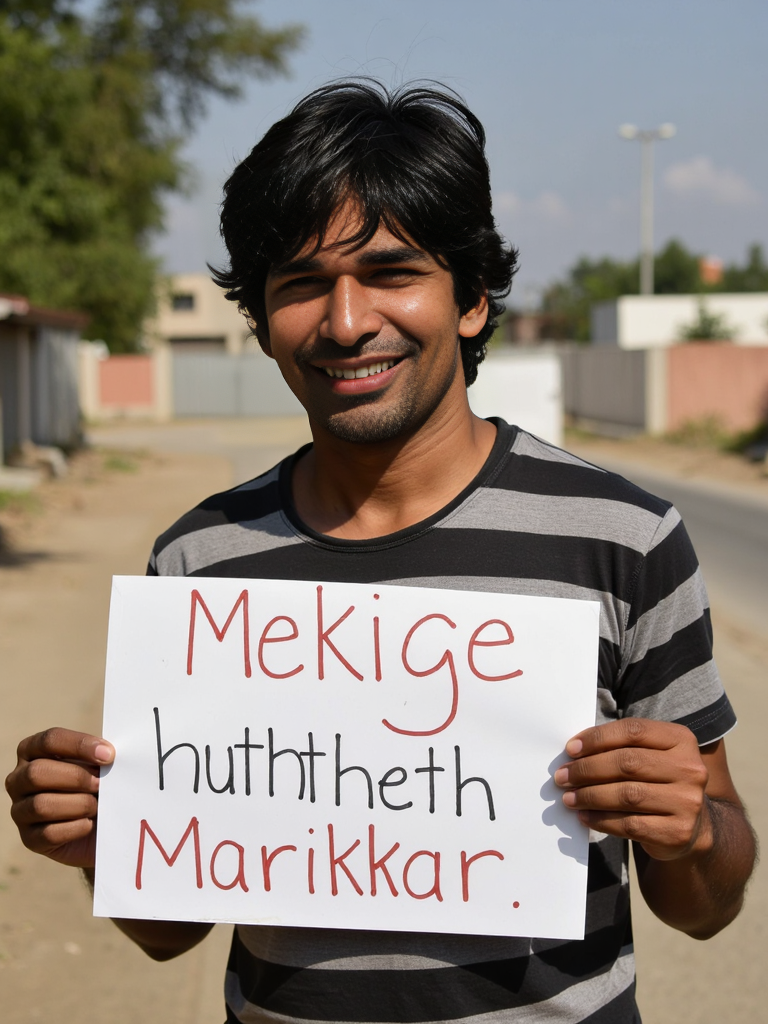 Mekige
huththeth
Marikkar.